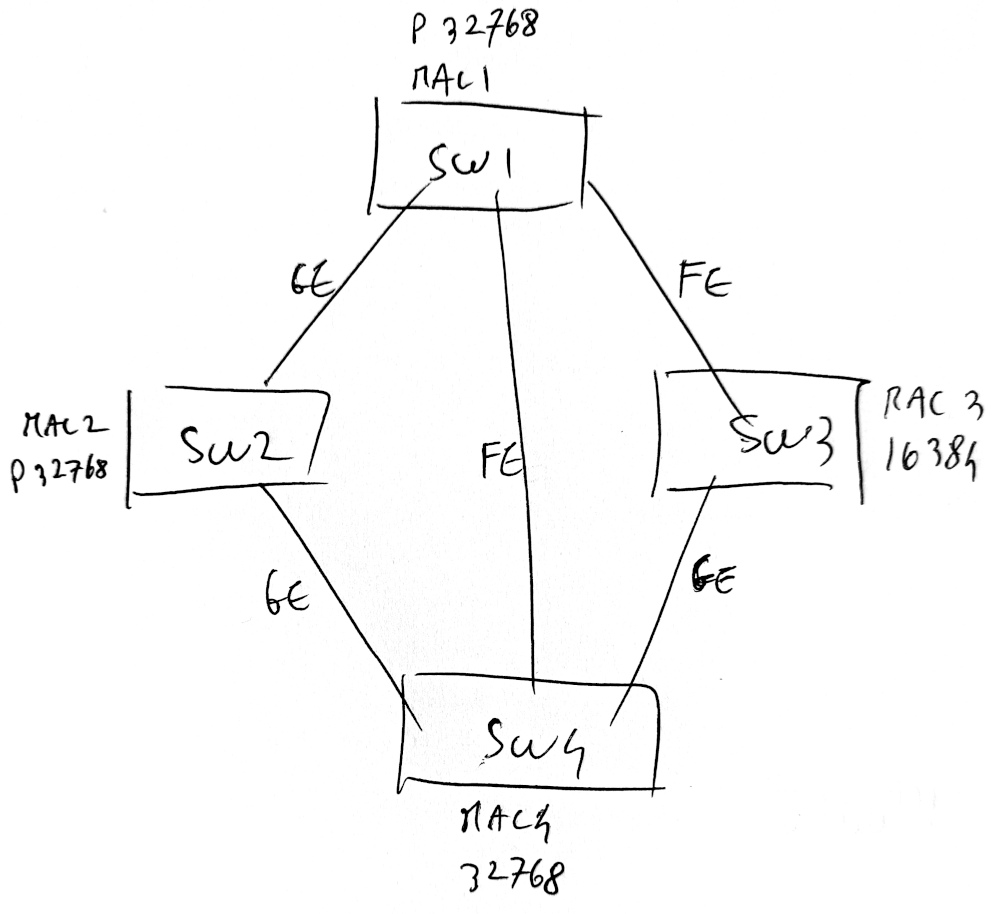 P 32768
MAC1
SW1
GE
FE
MAC2
P 32768
SW2
FE
SW3
MAC 3
16384
GE
GE
SW4
MAC4
32768